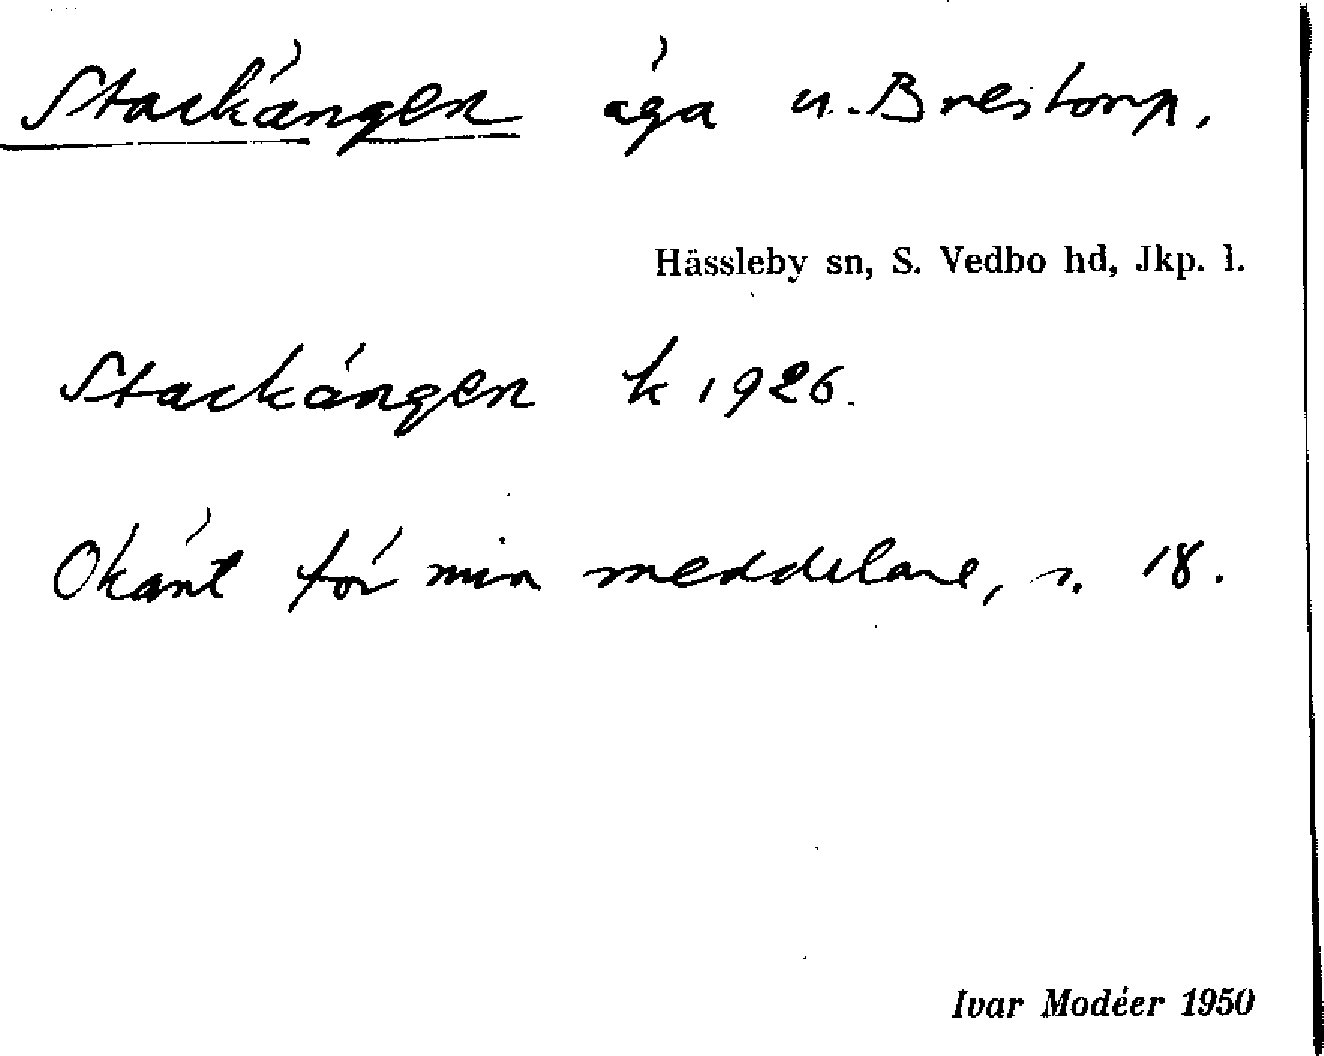 Stackängen äga u. Breitorp.
Hässleby sn, S. Vedbo hd, Jkp. l.
Stackängen k 1926.
Okänt för min meddelare, s. 18.
Ivar Modéer 1950